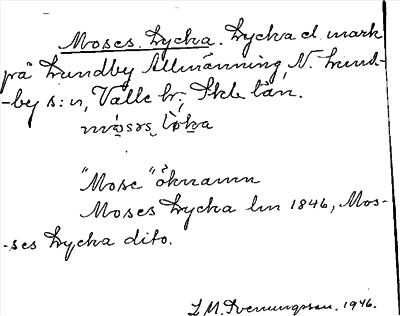 Moses Lycka. Lycka el. mark
på Lundby Allmänning, N. Lund-
-by s:n, Valle hr, Skbs län.
"Mose" öknamn
Moses Lycka lm 1846, Mos-
-ses Lycka dito.
L M. Svenungsson. 1946.